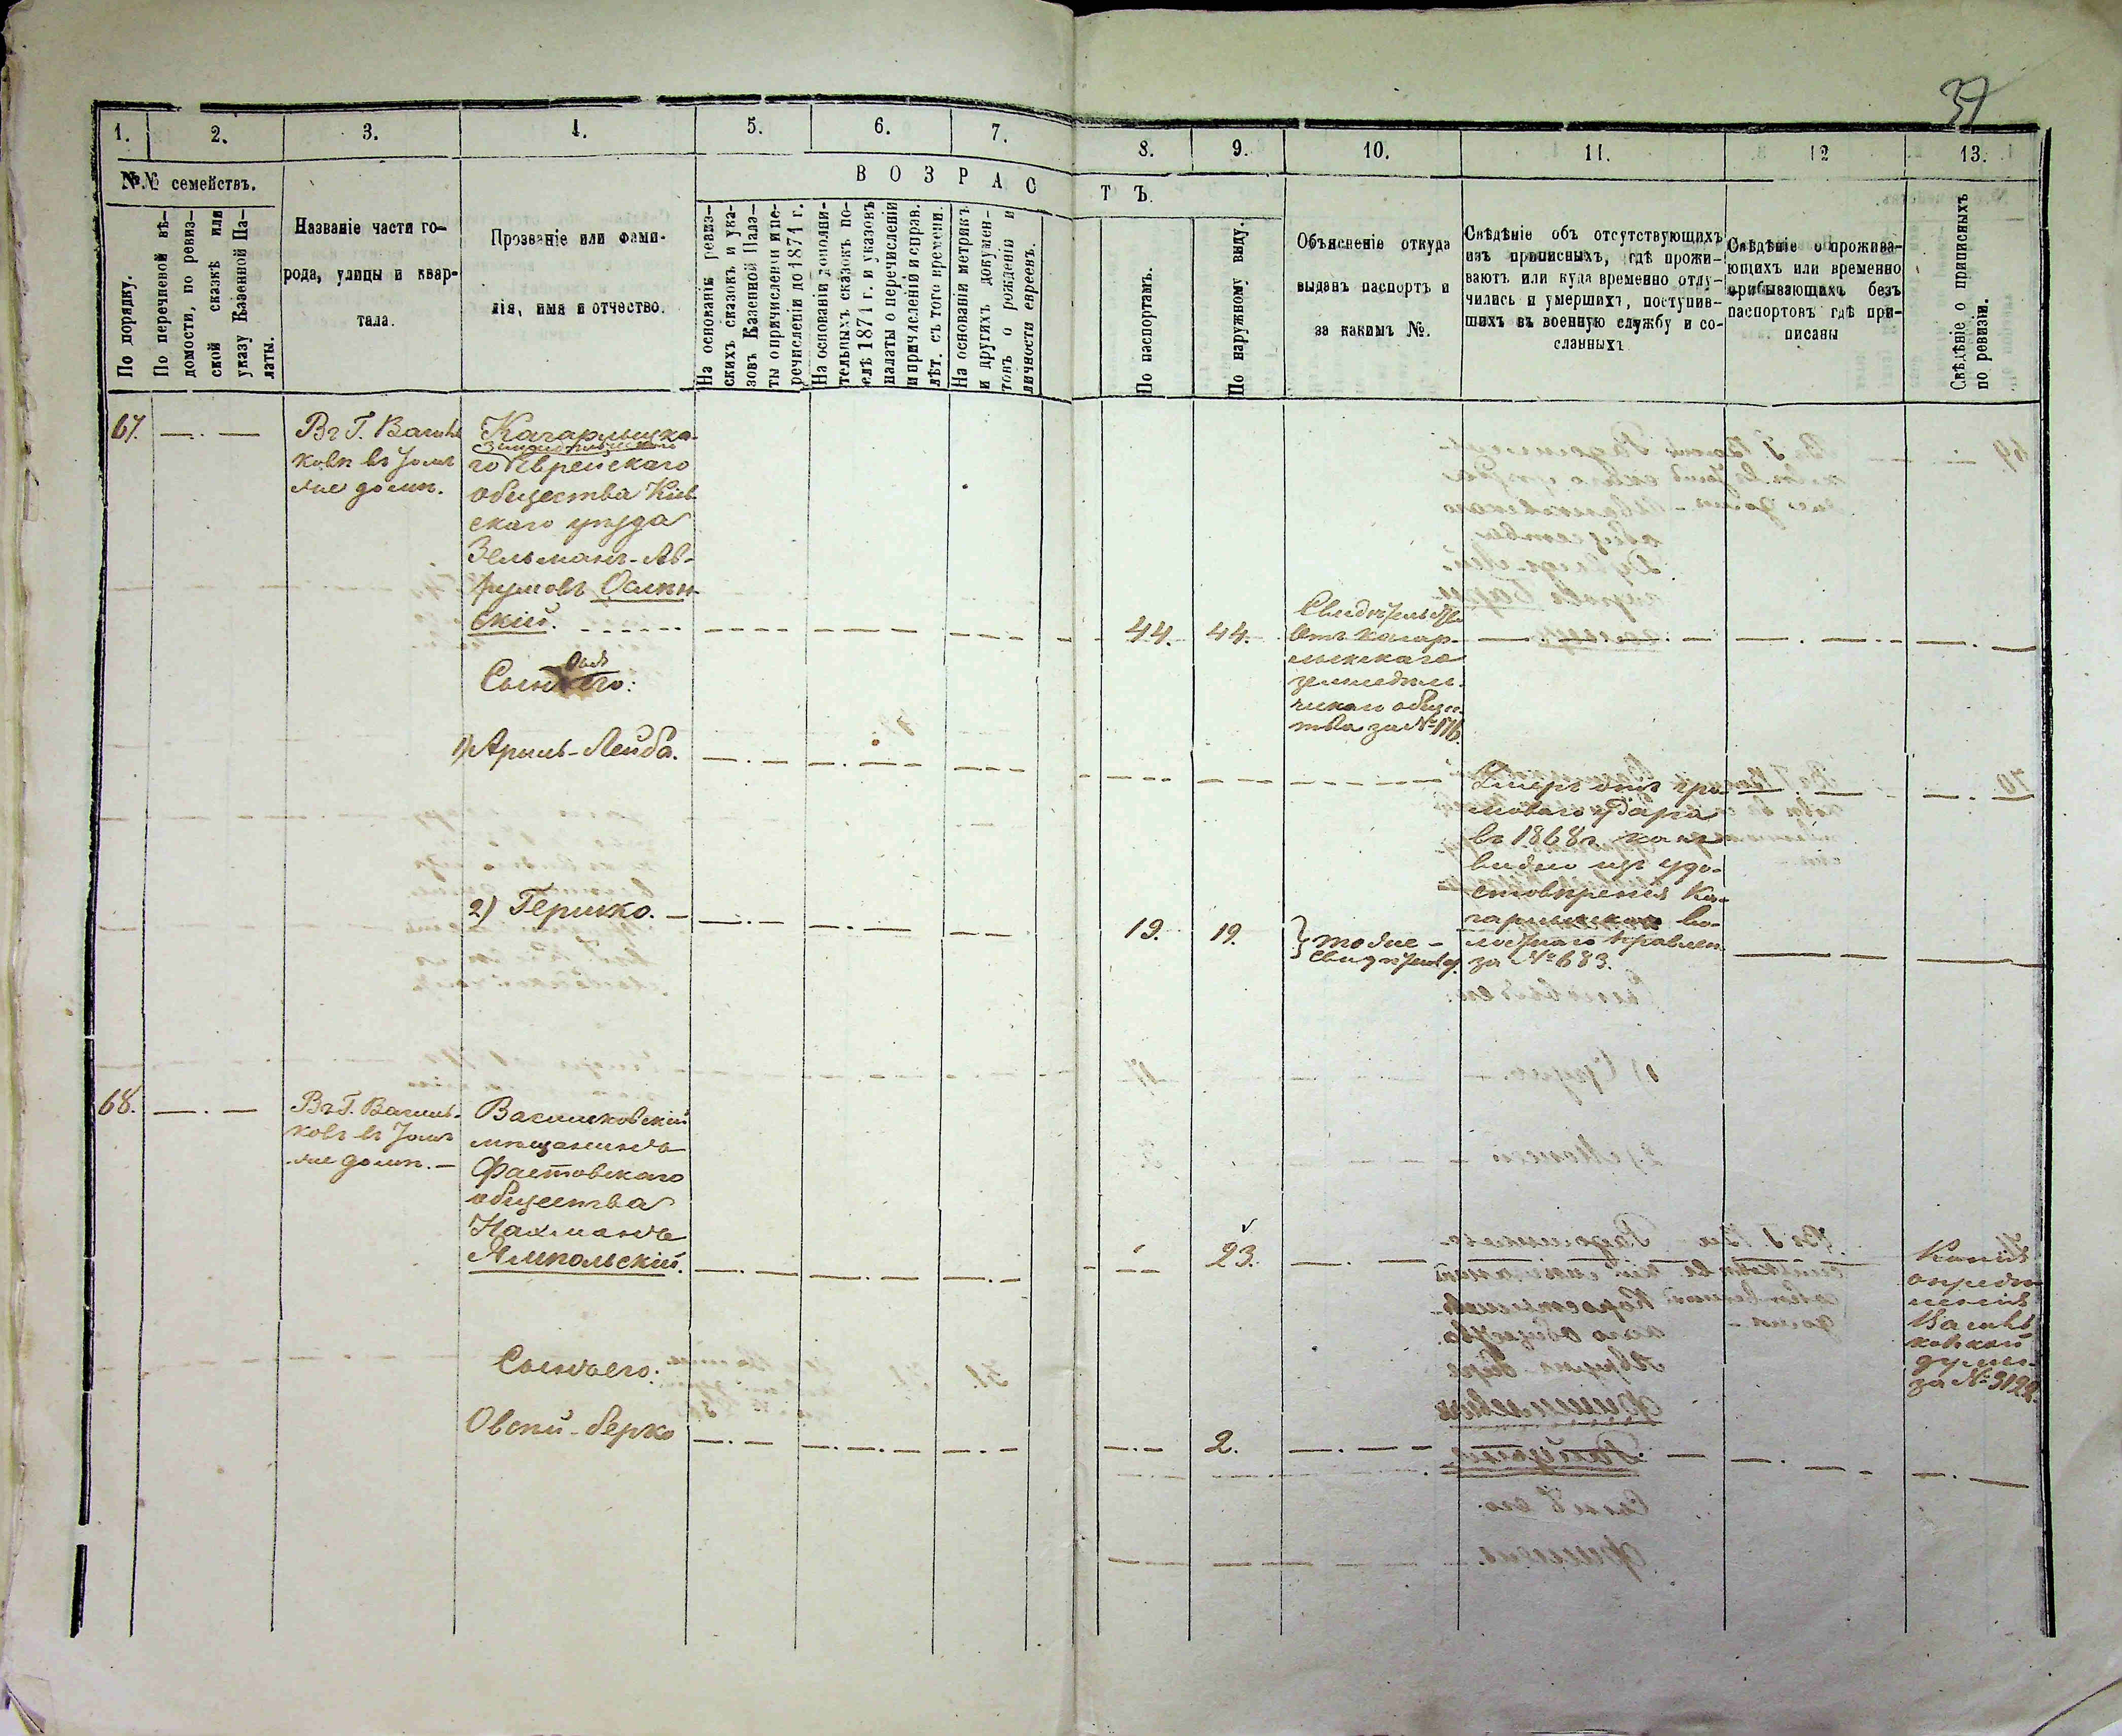 37
1. 2. 3. 4. 5. 6. 7. 8. 9. 10. 11. 12 13.
№.№ семействъ.
По порядку.
По перечневой вѣ-
домости, по ревиз-
ской сказкѣ или
указу Казенной Па-
латы.
Названіе части го-
рода, улицы и квар-
тала.
Прозваніе или фами-
лія, имя и отчество.
ВОЗРАСТЪ.
На основаніи ревиз-
скихъ сказокъ и ука-
зовъ Казенной Пала-
ты о причисленіи и пе-
речисленіи до 1871 г.
На основаніи дополни-
тельныхъ сказокъ по-
слѣ 1871 г. и указовъ
палаты о перечисленіи
и причисленіи и справ.
лѣт. съ того времени.
На основаніи метрикъ
и другихъ докумен-
товъ о рожденіи и
личности евреевъ.
По паспортамъ.
По наружному виду.
Объясненіе откуда
выданъ паспортъ и
за какимъ №.
Свѣдѣніе объ отсутствующихъ
изъ приписныхъ, гдѣ прожи-
ваютъ или куда временно отлу-
чились и умершихъ, поступив-
шихъ въ военную службу и со-
сланныхъ
Свѣдѣніе о прожива-
ющихъ или временно
прибывающихъ безъ
паспортовъ гдѣ при-
писаны
Свѣдѣніе о приписныхъ
по ревизіи.
67.
Въ Г. Василь
ковѣ въ
домѣ.
Кагарлыцка-
го Еврейскаго
общества Кіев
скаго уѣзда
Зельманъ-Ав-
румовъ Ослин-
скій.
44. 44.
Свидѣтельство
отъ кагар-
лыкскаго
земледѣль-
ческаго общес-
тва за № 176.
Сын его:
1) Арыль-Лейба.
Умеръ отъ гро-
моваго удара
въ 1868 г. какъ
видно изъ удо-
стовѣренія Ка-
гарлыкскаго во-
лостнаго правлен.
за № 683.
2) Гершко.
19. 19.
тоже
свидѣтельст.
68.
Въ Г. Василь-
ковѣ въ
домѣ.
Васильковскій
мѣщанинъ
Фастовскаго
общества
Нахманъ
Ямпольскій.
23.
Копія
опредѣ-
ленія
Василь
ковской
думы
за № 3122.
Сынъ его:
Овсѣй-Берко
2.